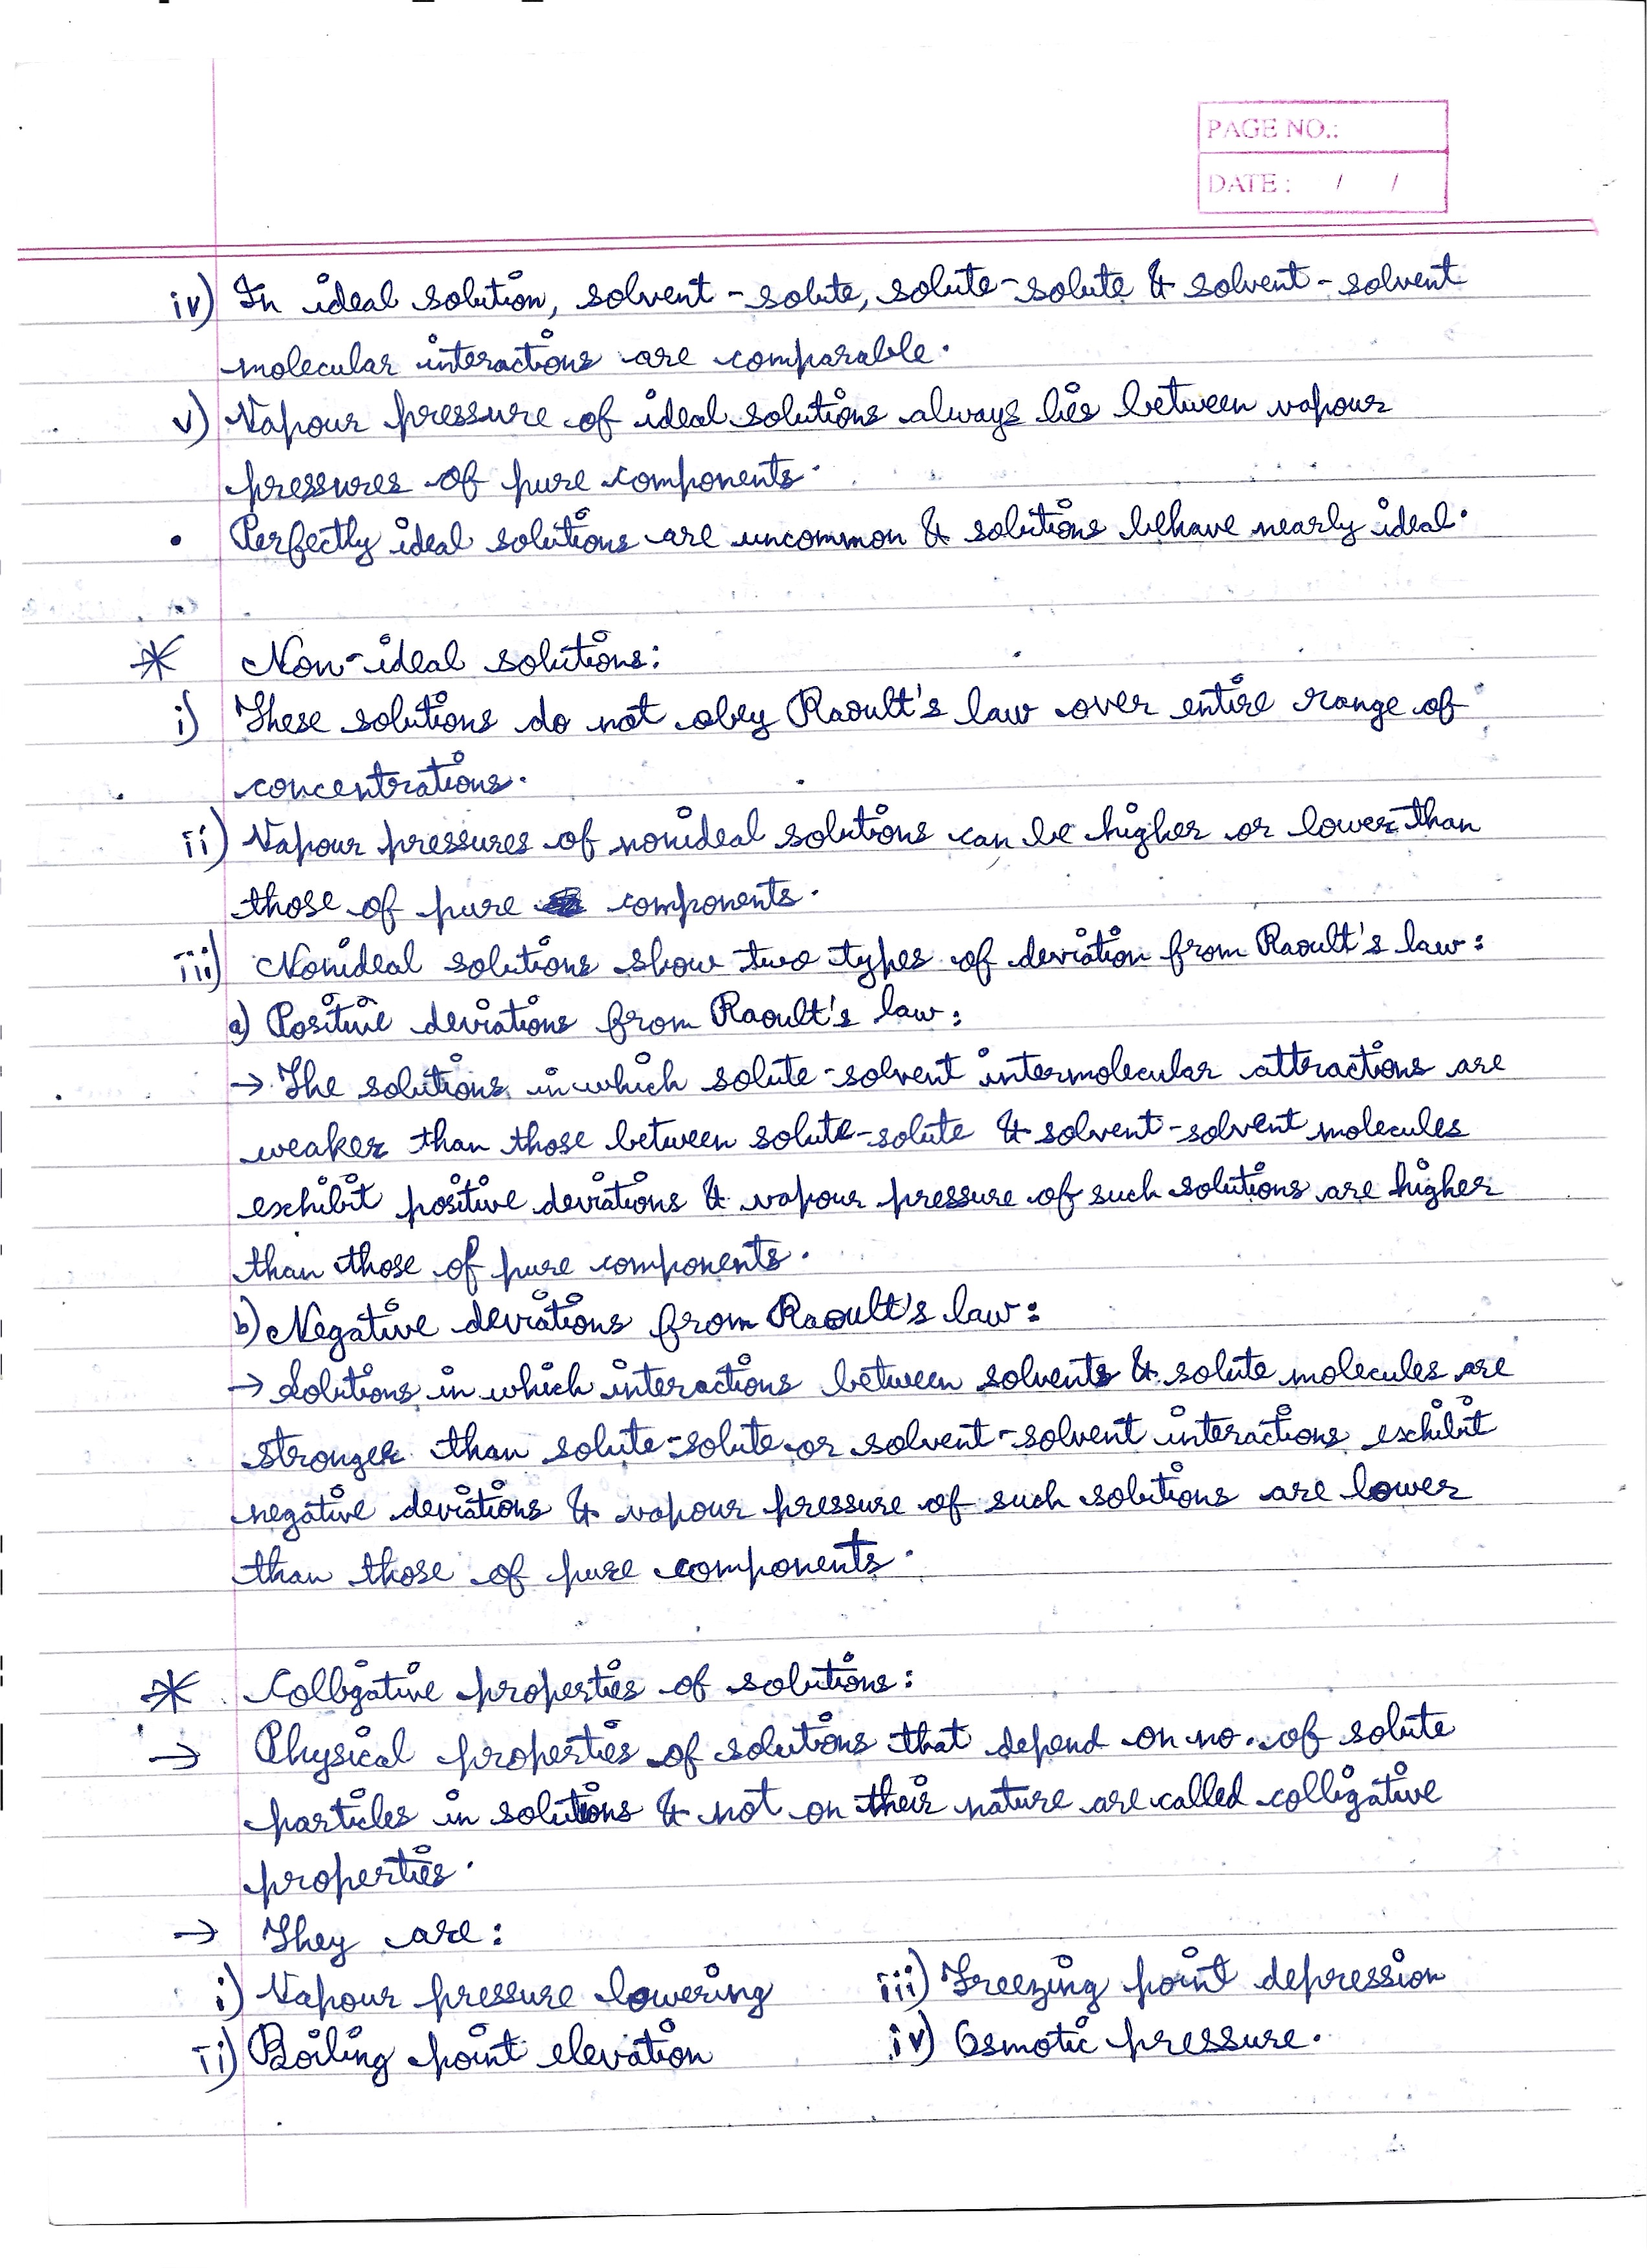 PAGE NO.:
DATE : / /
iv) In ideal solution, solvent - solute, solute-solute & solvent - solvent
molecular interactions are comparable.
v) Vapour pressure of ideal solutions always lies between vapour
pressures of pure components.
• Perfectly ideal solutions are uncommon & solutions behave nearly ideal.
* Non-ideal solutions:
i) These solutions do not obey Raoult's law over entire range of
concentrations.
ii) Vapour pressures of nonideal solutions can be higher or lower than
those of pure components.
iii) Nonideal solutions show two types of deviation from Raoult's law:
a) Positive deviations from Raoult's law:
→ The solutions in which solute-solvent intermolecular attractions are
weaker than those between solute-solute & solvent-solvent molecules
exhibit positive deviations & vapour pressure of such solutions are higher
than those of pure components.
b) Negative deviations from Raoult's law:
→ Solutions in which interactions between solvents & solute molecules are
stronger than solute-solute or solvent-solvent interactions exhibit
negative deviations & vapour pressure of such solutions are lower
than those of pure components.
* Colligative properties of solutions:
→ Physical properties of solutions that depend on no. of solute
particles in solutions & not on their nature are called colligative
properties.
→ They are:
i) Vapour pressure lowering iii) Freezing point depression
ii) Boiling point elevation iv) Osmotic pressure.